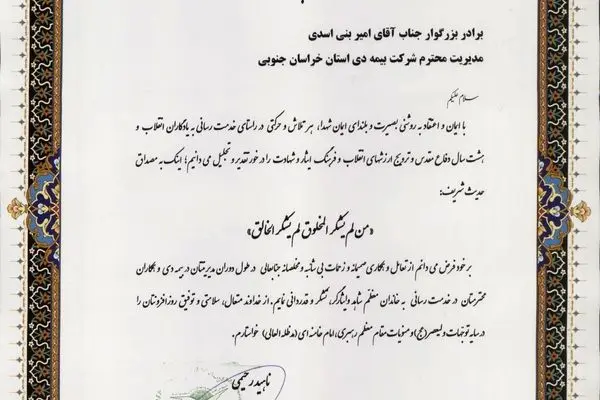 برادر بزرگوار جناب آقای امیر بنی اسدی
مدیریت محترم شرکت بیمه دی استان خراسان جنوبی
سلام علیکم
با ایمان و اعتقاد به روشنی بصیرت و بلندای ایمان شهدا، هر تلاش و حرکتی در راستای خدمت رسانی به یادگاران انقلاب و
هشت سال دفاع مقدس و ترویج ارزشهای انقلاب و فرهنگ ایثار و شهادت را در خور تقدیر و تجلیل می دانیم؛ اینک به مصداق
حدیث شریف:
«من لم یشکر المخلوق لم یشکر الخالق»
بر خود فرض می دانم از تعامل و همکاری صمیمانه و زحمات بی شائبه و مخلصانه جنابعالی در طول دوران مدیریتتان در بیمه دی و همکاران
محترمتان در خدمت رسانی به خاندان معظم شاهد و ایثارگر، تشکر و قدردانی نمایم. از خداوند متعال، سلامتی و توفیق روزافزونتان را
در سایه توجهات ولیعصر (عج) و منویات مقام معظم رهبری، امام خامنه ای (مدظله العالی) خواستارم.
ناهید رحیمی